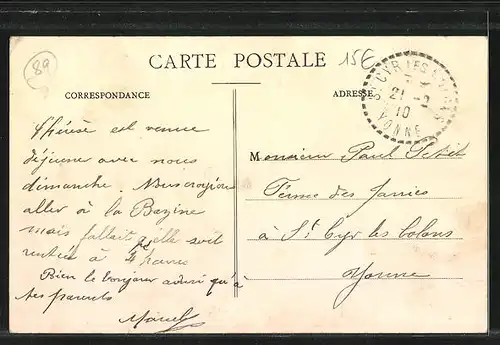 89
CARTE POSTALE
15€
CORRESPONDANCE
ADRESSE
ST CYR LES COLONS
21 - 2
10
YONNE
Thérèse est venue
déjeuner avec nous
dimanche. Nous croyions
aller à la
mais fallait qu'elle soit
rentrée à 4 heures
Bien le bonjour aussi qu'à
tes parents
Marcel
Monsieur Paul
Ferme des
à St Cyr les Colons
Yonne